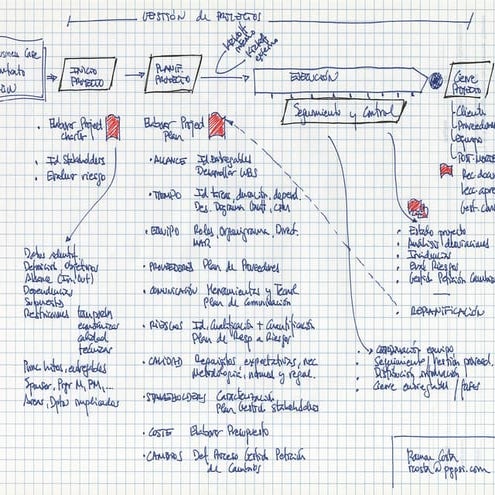 GESTIÓN de PROYECTOS
Business Case
Contrato
INICIO
PROYECTO
PLANIF.
PROYECTO
KICKOFF
INTERNO
KICKOFF
EXTERNO
EJECUCIÓN
Seguimiento y Control
CIERRE
PROYECTO
- Cliente
- Proveedores
- Equipo
- POST-
Rec. docu
Lecc. apre
Gest. con
• Elaborar Project
charter
• Id. Stakeholders
• Evaluar riesgo
Datos identif.
Definición objetivos
Alcance (In/Out)
Dependencias
Supuestos
Restricciones temporales
económicas
calidad
técnicas
Princ. hitos, entregables
Sponsor, Pgr M, PM, ...
Areas, Dptos implicados
Elaborar Project
Plan
• ALCANCE Id. Entregables
Desarrollar WBS
• TIEMPO Id. tareas, duración, depend.
Des. Diagrama Gantt, CPM
• EQUIPO Roles, Organigrama, Direct.
• PROVEEDORES Plan de Proveedores
• COMUNICACIÓN Herramientas y Tecn
Plan de Comunicación
• RIESGOS Id., Cualificación + Cuantificación
Plan de Resp a Riesgos
• CALIDAD Requisitos, expectativas, nec
Metodologías, normas y regul.
• STAKEHOLDERS Caracterización,
Plan Gestión Stakeholders
• COSTE Elaborar Presupuesto
• CAMBIOS Def. Proceso Gestión Petición
de Cambios
• Estado proyecto
• Análisis desviaciones
• Incidencias
• Eval. Riesgos
• Gestión Petición Cambios
• REPLANIFICACIÓN
• COORDINACIÓN equipo
• Seguimiento / Gestión proveed.
• Distribución información
• Cierre entregables / fases
Ramon Costa
rcosta@pgpsi.com